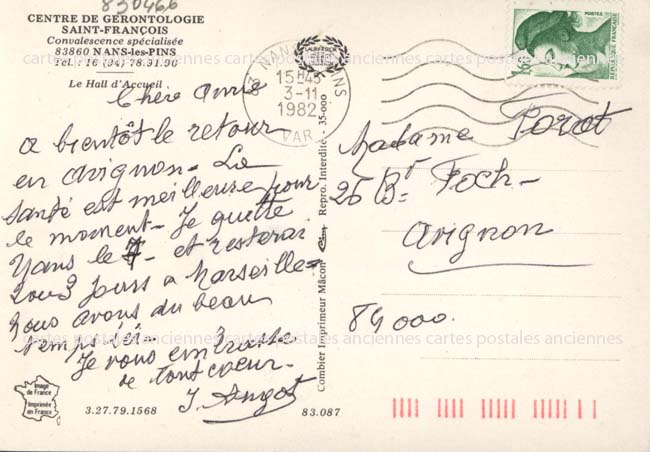 830466
CENTRE DE GÉRONTOLOGIE
SAINT-FRANÇOIS
Convalescence spécialisée
83860 NANS-les-PINS
Tél. : 16 (94) 78.91.90
Le Hall d'Accueil
Chère amie
a bientôt le retour
en avignon - La
santé est meilleure pour
le moment - Je quitte
Nans le - et resterai
2 ou 3 jours a Marseille
Nous avons du beau
temps
Je vous embrasse
de tout coeur -
Y. Angot
Image de France
Imprimée en France
3.27.79.1568
83.087
Combier Imprimeur Mâcon
Repro. Interdite - 35-000
83 NANS PINS
15H45
3-11
1982
VAR
POSTES
REPUBLIQUE FRANÇAISE
Madame Porot
26 Bd Foch -
Avignon
84000.
cartes postales anciennes cartes postales anciennes cartes postales anciennes
cartes postales anciennes cartes postales anciennes cartes postales anciennes